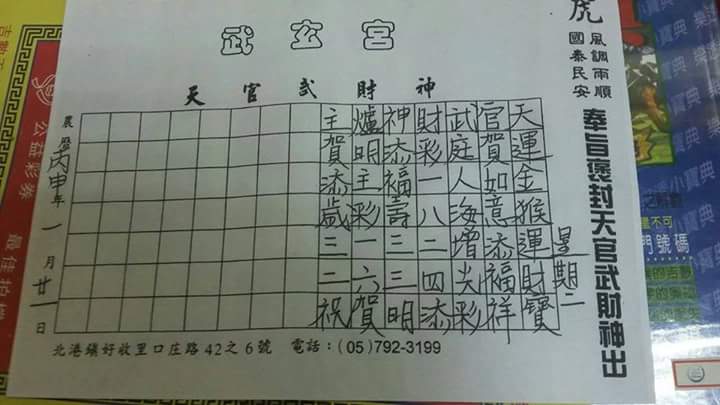 武玄宮
虎
風調雨順
國泰民安
奉旨褒封天官武財神出
天官武財神
星期二
天運金猴運財寶
官賀如意添福祥
武庭人海增尖彩
財彩一八二四添
神添福壽三三明
爐明主彩一六賀
主賀添歲三二祝
農曆丙申年一月廿一日
北港鎮好收里口庄路42之6號 電話：(05)792-3199
公益彩券
最佳拍檔
小寶典
門號碼